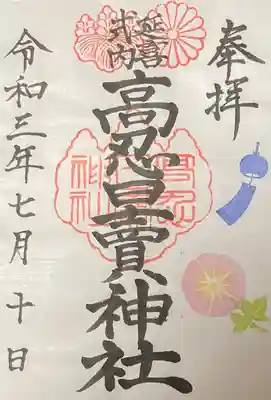 奉拝
延喜
式内
高忍日賣神社
令和三年七月十日